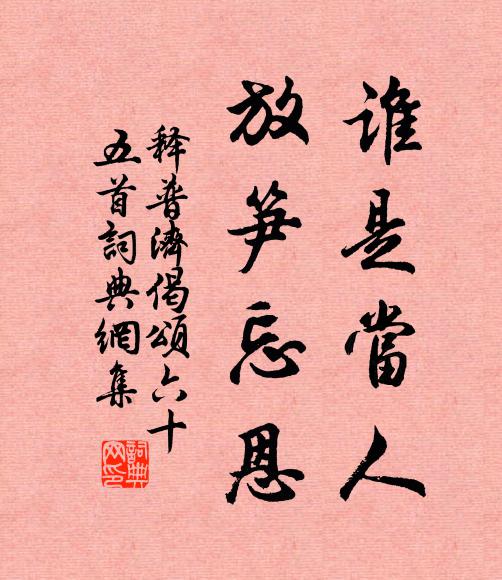 誰是當人
放笋忘恩
释普濟偈頌六十
五首詞典網集
詞典
网印